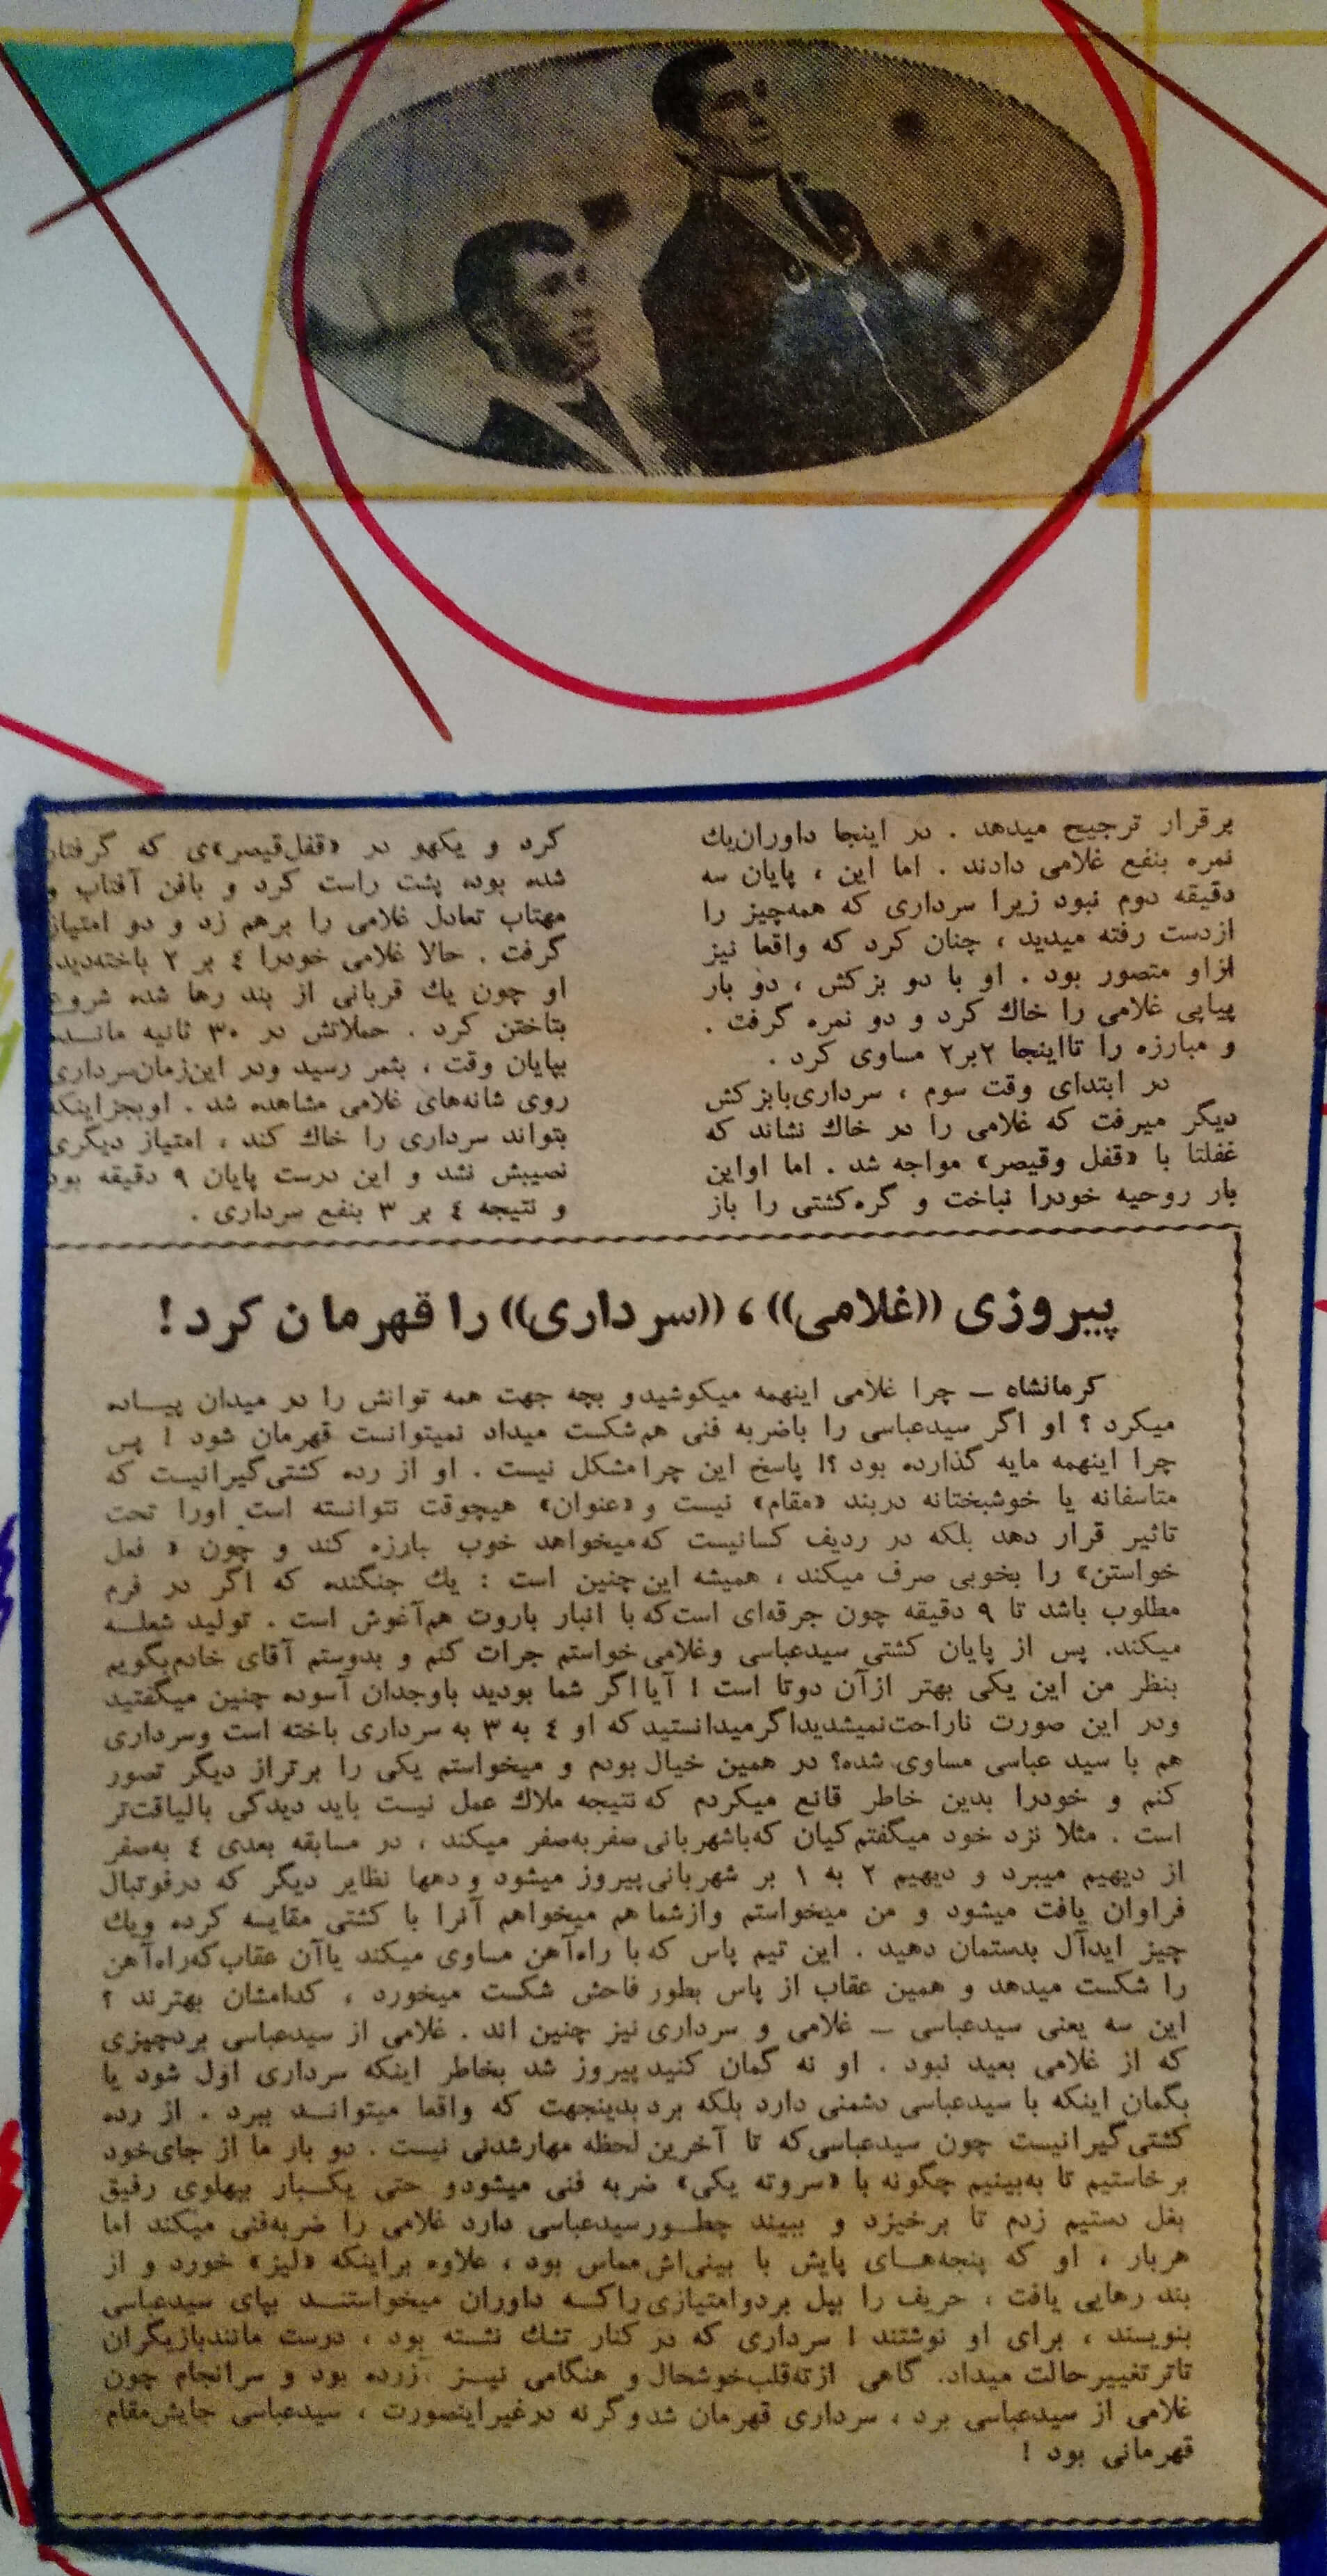 برقرار ترجیح میدهد . در اینجا داوران‌یك
نمره بنفع غلامی دادند . اما این ، پایان سه
دقیقه دوم نبود زیرا سرداری که همه‌چیز را
ازدست رفته میدید ، چنان کرد که واقعا نیز
ازاو متصور بود . او با دو بزکش ، دو بار
پیاپی غلامی را خاك کرد و دو نمره گرفت .
و مبارزه را تااینجا ۲بر۲ مساوی کرد .
در ابتدای وقت سوم ، سرداری‌بابزکش
دیگر میرفت که غلامی را در خاك نشاند که
غفلتا با «قفل وقیصر» مواجه شد . اما اواین
بار روحیه خودرا نباخت و گره‌کشتی را باز
کرد و یکهو در «قفل‌قیصر»ی که گرفتار
شده بوده پشت راست کرد و بافن آفتاب و
مهتاب تعادل غلامی را برهم زد و دو امتیاز
گرفت . حالا غلامی خودرا ٤ بر ۲ باخته‌دید.
او چون یك قربانی از بند رها شده شروع
بتاختن کرد . حملاتش در ۳۰ ثانیه مانـده
بپایان وقت ، بثمر رسید ودر این‌زمان‌سرداری
روی شانه‌های غلامی مشاهده شد . اوبجزاینکه
بتواند سرداری را خاك کند ، امتیاز دیگری
نصیبش نشد و این درست پایان ۹ دقیقه بود
و نتیجه ٤ بر ۳ بنفع سرداری .
پیروزی ((غلامی)) ، ((سرداری)) را قهرمان کرد !
کرمانشاه ــ چرا غلامی اینهمه میکوشیدو بچه جهت همه توانش را در میدان پیـاده
میکرد ؟ او اگر سیدعباسی را باضربه فنی هم‌شکست میداد نمیتوانست قهرمان شود ! پس
چرا اینهمه مایه گذارده بود ؟! پاسخ این چرا‌مشکل نیست . او از رده کشتی‌گیرانیست که
متاسفانه یا خوشبختانه دربند «مقام» نیست و«عنوان» هیچوقت نتوانسته است اورا تحت
تاثیر قرار دهد بلکه در ردیف کسانیست که‌میخواهد خوب بارزه کند و چون « فعل
خواستن» را بخوبی صرف میکند ، همیشه این‌چنین است : یك جنگنده که اگر در فرم
مطلوب باشد تا ۹ دقیقه چون جرقه‌ای است‌که با انبار باروت هم‌آغوش است . تولید شعلـه
میکند. پس از پایان کشتی سیدعباسی وغلامی خواستم جرات کنم و بدوستم آقای خادم‌بگویم
بنظر من این یکی بهتر ازآن دوتا است ! آیااگر شما بودید باوجدان آسوده چنین میگفتید
ودر این صورت ناراحت‌نمیشدیداگرمیدانستید که او ٤ به ۳ به سرداری باخته است وسرداری
هم با سید عباسی مساوی شده؟ در همین خیال بودم و میخواستم یکی را برتراز دیگر تصور
کنم و خودرا بدین خاطر قانع میکردم که نتیجه ملاك عمل نیست باید دیدکی بالیاقت‌تر
است . مثلا نزد خود میگفتم کیان که‌باشهربانی صفربه‌صفر میکند ، در مسابقه بعدی ٤ به‌صفر
از دیهیم میبرد و دیهیم ۲ به ۱ بر شهربانی پیروز میشود ودهها نظایر دیگر که درفوتبال
فراوان یافت میشود و من میخواستم وازشما هم میخواهم آنرا با کشتی مقایسه کرده ویك
چیز ایدآل بدستمان دهید . این تیم پاس که با راه‌آهن مساوی میکند یاآن عقاب‌که‌راه‌آهن
را شکست میدهد و همین عقاب از پاس بطور فاحش شکست میخورد ، کدامشان بهترند ؟
این سه یعنی سیدعباسی ــ غلامی و سرداری نیز چنین اند . غلامی از سیدعباسی بردچیزی
که از غلامی بعید نبود . او نه گمان کنید پیروز شد بخاطر اینکه سرداری اول شود یا
بگمان اینکه با سیدعباسی دشمنی دارد بلکه برد بدینجهت که واقعا میتوانـد ببرد . از رده
کشتی‌گیرانیست چون سیدعباسی‌که تا آخرین لحظه مهارشدنی نیست . دو بار ما از جای‌خود
برخاستیم تا به‌بینیم چگونه با «سروته یکی» ضربه فنی میشودو حتی یکـبار بپهلوی رفیق
بغل دستیم زدم تا برخیزد و ببیند چطـور‌سیدعباسی دارد غلامی را ضربه‌فنی میکند اما
هربار ، او که پنجه‌هـای پایش با بینی‌اش‌مماس بود ، علاوه براینکه «لیز» خورد و از
بند رهایی یافت ، حریف را بپل بردوامتیازی راکـه داوران میخواستنـد بپای سیدعباسی
بنویسند ، برای او نوشتند ! سرداری که در کنار تشك نشسته بود ، درست مانندبازیگران
تاترتغییرحالت میداد. گاهی ازته‌قلب‌خوشحال و هنگامی نیـز زرده بود و سرانجام چون
غلامی از سیدعباسی برد ، سرداری قهرمان شدوگرنه درغیراینصورت ، سیدعباسی جایش‌مقام
قهرمانی بود !